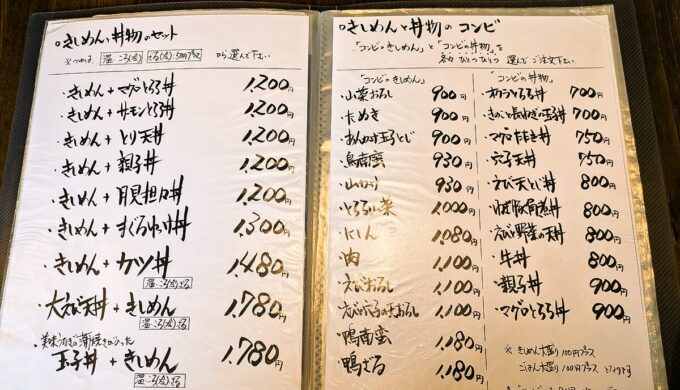 きしめん、丼物のセット
きしめん + マグロとろろ丼 1,200円
きしめん + サーモンとろろ丼 1,200円
きしめん + とり天丼 1,200円
きしめん + 親子丼 1,200円
きしめん + 月見担々丼 1,200円
きしめん + 1,300円
きしめん + カツ丼 1,480円
大えび天丼 + きしめん 1,780円
玉子丼 + きしめん 1,780円
きしめんと丼物のコンビ
「コンビのきしめん」と「コンビの丼物」を
各々 ひとつ ひとつ 選んで ご注文下さい
「コンビのきしめん」
・山菜おろし 900円
・たぬき 900円
・あんかけ玉子とじ 900円
・鳥南蛮 930円
・山かけ 930円
・とろろ山菜 1,000円
・にしん 1,080円
・肉 1,100円
・えびおろし 1,100円
1,100円
・鴨南蛮 1,180円
・鴨ざる 1,180円
「コンビの丼物」
・オクラとろろ丼 700円
・きのこと長ねぎの玉子丼 700円
・マグロたたき丼 750円
・穴子天丼 750円
・えび天とじ丼 800円
800円
・えびと野菜の天丼 800円
・牛丼 800円
・親子丼 900円
・マグロとろろ丼 900円
※ きしめん大盛り 100円プラス
ごはん大盛り 100円プラス